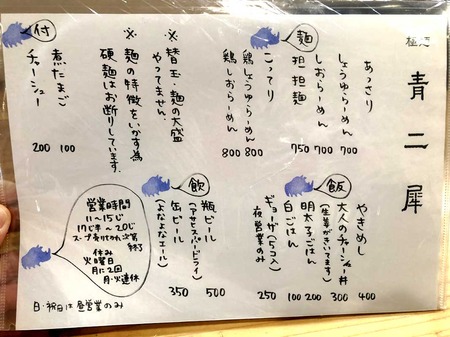 極麺
青二犀
麺
あっさり
しょうゆらーめん 700
しおらーめん 700
担担麺 750
こってり
鶏しょうゆらーめん 800
鶏しおらーめん 800
※替玉・麺の大盛
やってません.
※麺の特徴をいかす為
硬麺はお断りしています.
付
煮たまご 100
チャーシュー 200
飯
やきめし 400
大人のチャーシュー丼 300
(生姜がきいてます)
明太子ごはん 200
白ごはん 100
ギョーザ(5コ入) 250
夜営業のみ
飲
瓶ビール 500
(アサヒスーパードライ)
缶ビール 350
(よなよなエール)
営業時間
11〜15じ
17じ半〜20じ
スープ売りきれ次第
終了
休み
火曜日
月に2回
月・火連休
日・祝日は昼営業のみ